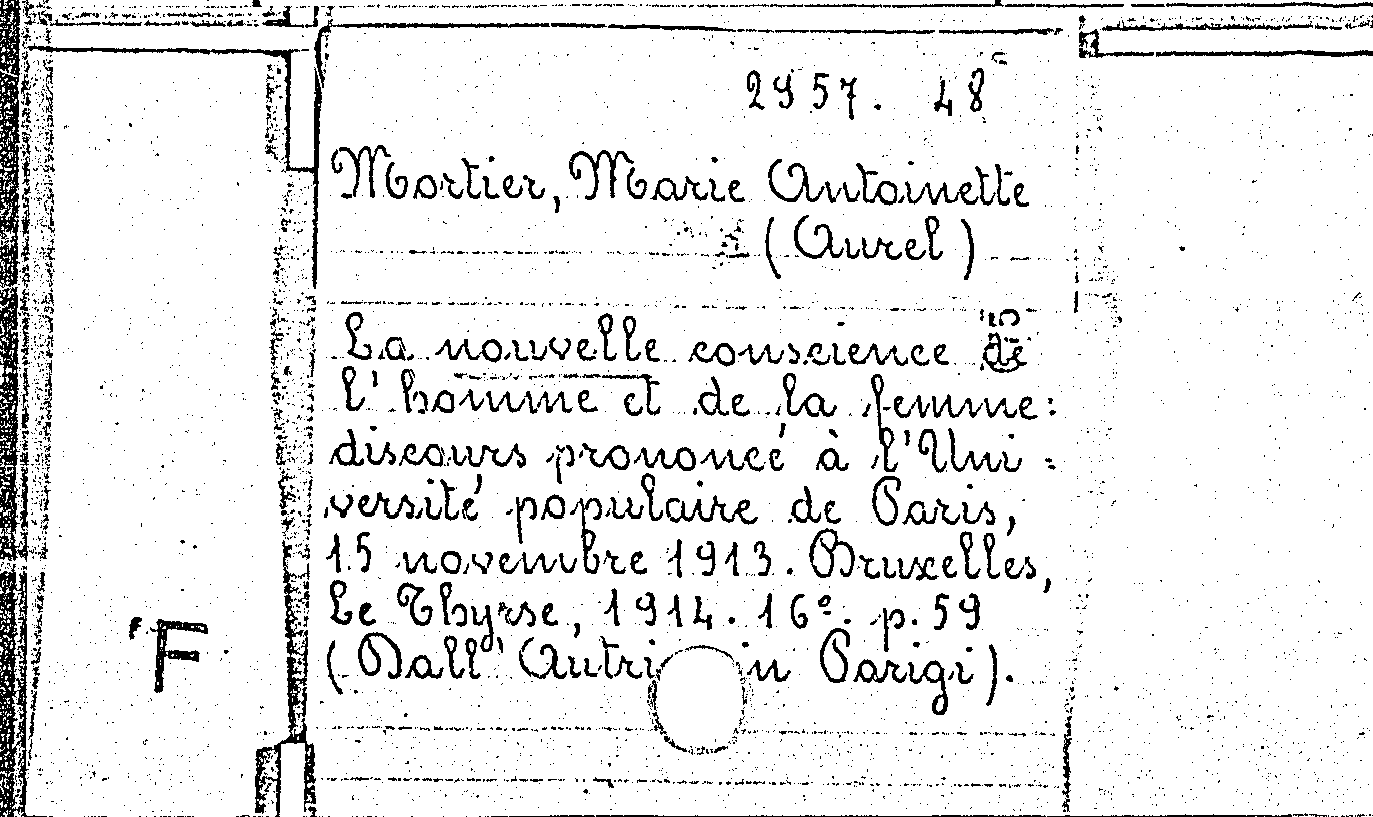 2957. 48
Mortier, Marie Antoinette
(Aurel)
La nouvelle conscience de
l'homme et de la femme:
discours prononcé à l'Uni=
versité populaire de Paris,
15 novembre 1913. Bruxelles,
Le Thyrse, 1914. 16º. p. 59
(Dall' in Parigi).
F